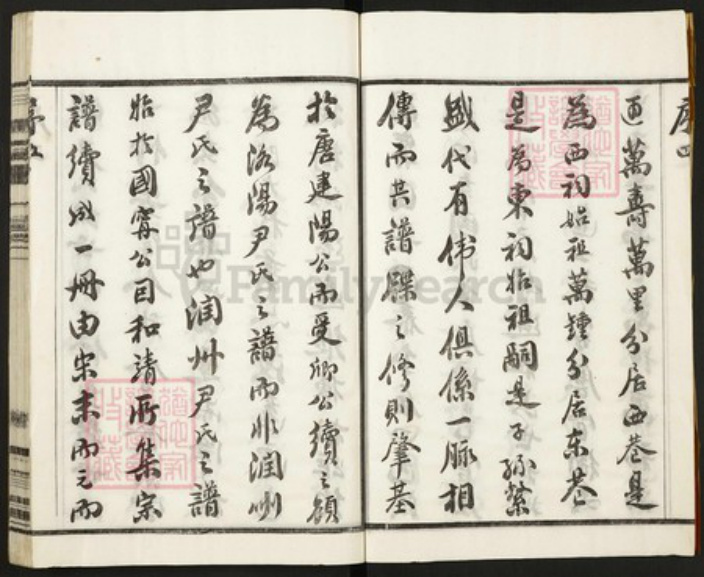 序四
迺萬壽萬里分居西巷是
為西祠始祖萬鍾分居东巷
是為東祠始祖嗣是子孫繁
盛代有伟人俱係一脉相
傳而其譜牒之修則肇基
於唐建陽公而受卿公續之顧
為洛陽尹氏之譜而非潤州
尹氏之譜也润州尹氏之譜
始於國寗公因和靖所集宗
譜續成一冊由宋末而元而
序五
FamilySearch